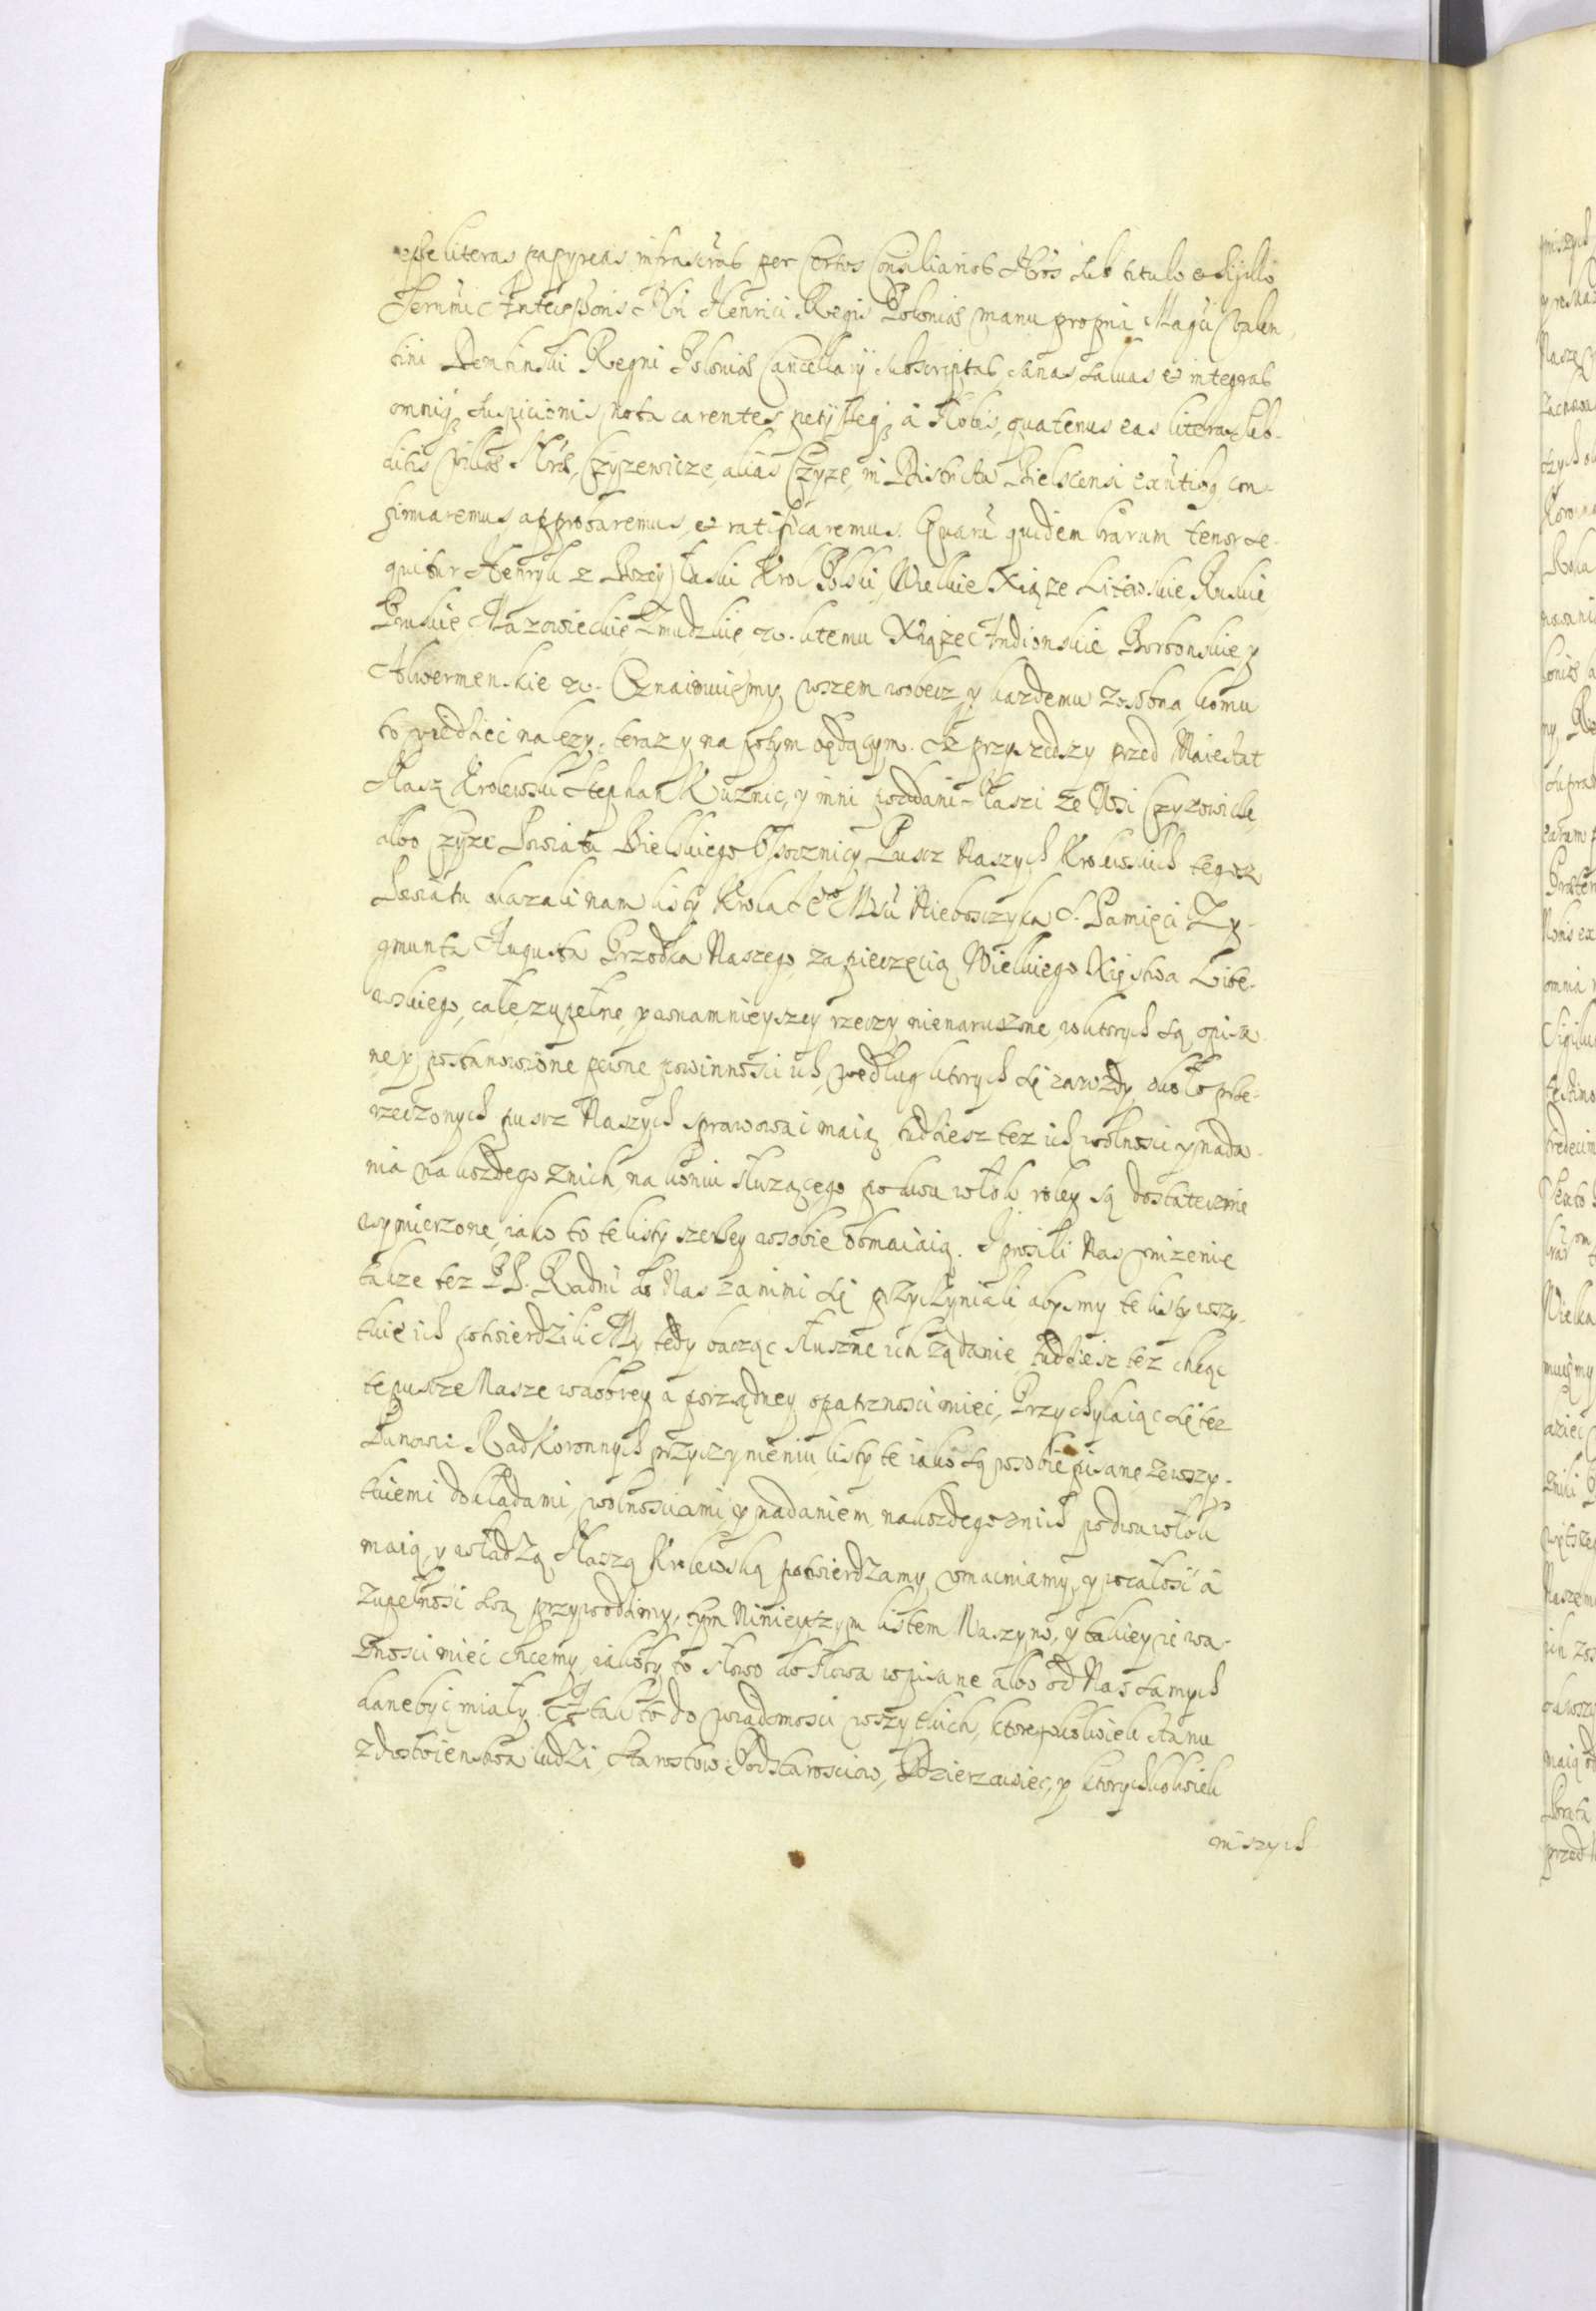 esse literas papyreas infrascrãs per certos Consiliarios Nr̃os sub titulo et sigillo
Sereñmi Antecessoris Nr̃i Henrici Regis Poloniae manu propria Magci Valen-
tini Dembinski Regni Poloniae Cancellarij subscriptas, sanas salvas et integras
omniq; suspicionis nota carentes, petijtq; à Nobis, quatenus eas literas sub-
ditis Villae Nr̃ae, Czyzewicze, alias Czyze, in Districtu Bielscensi exñtibq con-
firmaremus approbaremus, et ratificaremus. Quarũ quidem lr̃arum tenor se-
quitur Henryk z Bozey łaski Krol Polski, Wielkie Xiąze Litewskie, Ruskie
Pruskie, Mazowieckie, Zmudzkie, etc. ktemu Xiąze Andionskie Borbonskie y
Alwermenskie etc. Oznaimuiemy wszem wobecz, y kazdemu zosobna, komu
to wiedzieć nalezy, teraz y na potym będącym. Iz przyszedszy przed Maiestat
Nasz Krolewski Stephan Kuznic, y inni poddani Naszi ze Wsi Czyzowicze,
albo Czyze Powiatu Bielskiego Osocznicy Puscz Naszych Krolewskich tegosz
Powiatu okazali nam listy Krola Je⁰ Mści Nieboszczyka S. Pamięci Zy-
gmunta Augusta Przodka Naszego, zapieczęcią Wielkiego Xięstwa Lite-
wskiego, całe, zupełne, y wnamnieyszey rzeczy nienaruszone, wktorych są, opisa-
ne y postanowione pewne powinnosci ich, według ktorych się zawzdy około prze-
rzeczonych puscz Naszych sprawowaċ maią, tudziesz tez ich wolnosci y nada-
nia na kozdego znich, na koniu sluzącego po dwu włok roley są dostatecznie
wymierzone, iako to te listy szerzey wsobie obmaiaią. I prosili Nas unizenie
takze tez PP. Radni do Nas zanimi się przyczyniali abysmy te listy wszy-
tkie ich potwierdzili My tedy bacząc słuszne ich ządanie, tudziesz tez chcąc
te puscze Nasze wdobrey a porządney opatrznosci mieć, Przychylaiąc się tez
Panow Rad Koronnych przyczynieniu, listy te iako są wsobie pisane, zewszy-
tkiemi dokładami, wolnosciami, y nadaniem, nakozdego znich podwu włok
maią, y władzą Naszą Krolewską potwierdzamy, umacniamy, y wcałość á
zupełność swą przywodzimy, tym Ninieyszym listem Naszym, y takiey ie wa-
znosci mieć chcemy, iakoby to słowo do słowa wpisane albo od Nas samych
dane być miały. Co tak to do wiadomosci wszytkich, ktoregokolwiek stanu
zdostoienstwa ludzi, Starostow Podstarosciow, Dzierzawiec, y ktorychkolwiek
inszych